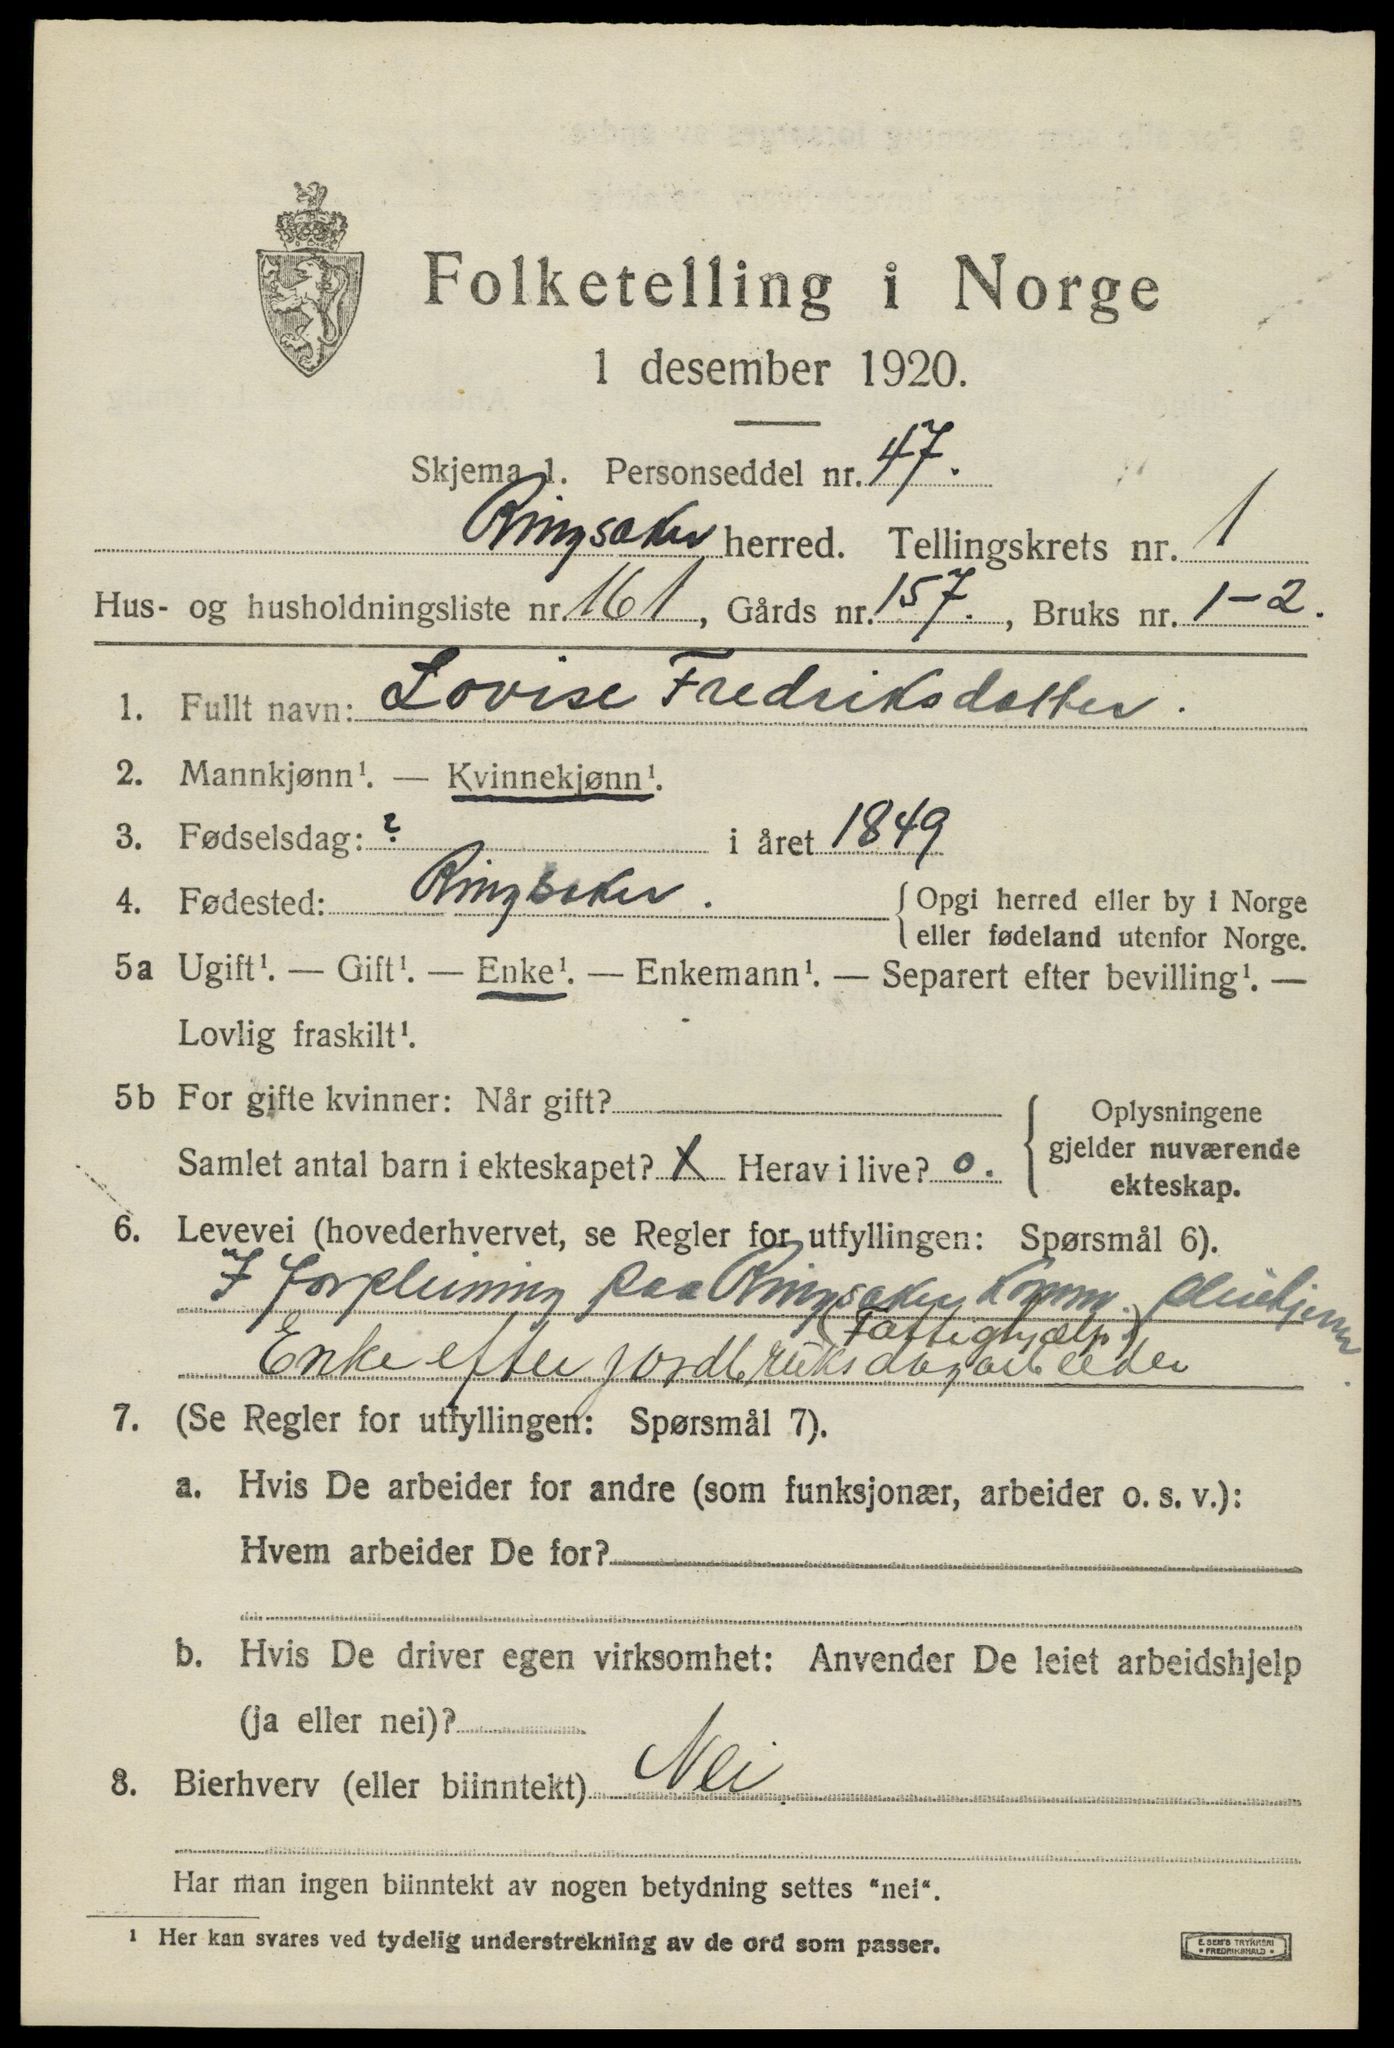 Folketelling i Norge
1 desember 1920.
Skjema 1. Personseddel nr. 47.
Ringsaker herred. Tellingskrets nr. 1
Hus- og husholdningsliste nr. 161, Gårds nr. 157., Bruks nr. 1-2.
1. Fullt navn: Lovise Fredriksdatter.
2. Mannkjønn¹. — Kvinnekjønn¹.
3. Fødselsdag: ? i året 1849
4. Fødested: Ringsaker. { Opgi herred eller by i Norge
eller fødeland utenfor Norge.
5a Ugift¹. — Gift¹. — Enke¹. — Enkemann¹. — Separert efter bevilling¹. —
Lovlig fraskilt¹.
5b For gifte kvinner: Når gift?
Samlet antal barn i ekteskapet? X Herav i live? 0.
{ Oplysningene
gjelder nuværende
ekteskap.
6. Levevei (hovederhvervet, se Regler for utfyllingen: Spørsmål 6).
I forpleining paa Ringsaker Komm. pleiehjem
(Fattighjælp)
Enke efter jordbruksdagarbeider
7. (Se Regler for utfyllingen: Spørsmål 7).
a. Hvis De arbeider for andre (som funksjonær, arbeider o. s. v.):
Hvem arbeider De for?
b. Hvis De driver egen virksomhet: Anvender De leiet arbeidshjelp
(ja eller nei)?
8. Bierhverv (eller biinntekt) Nei
Har man ingen biinntekt av nogen betydning settes "nei".
¹ Her kan svares ved tydelig understrekning av de ord som passer.
E. SEM'S TRYKKERI
• FREDRIKSHALD •